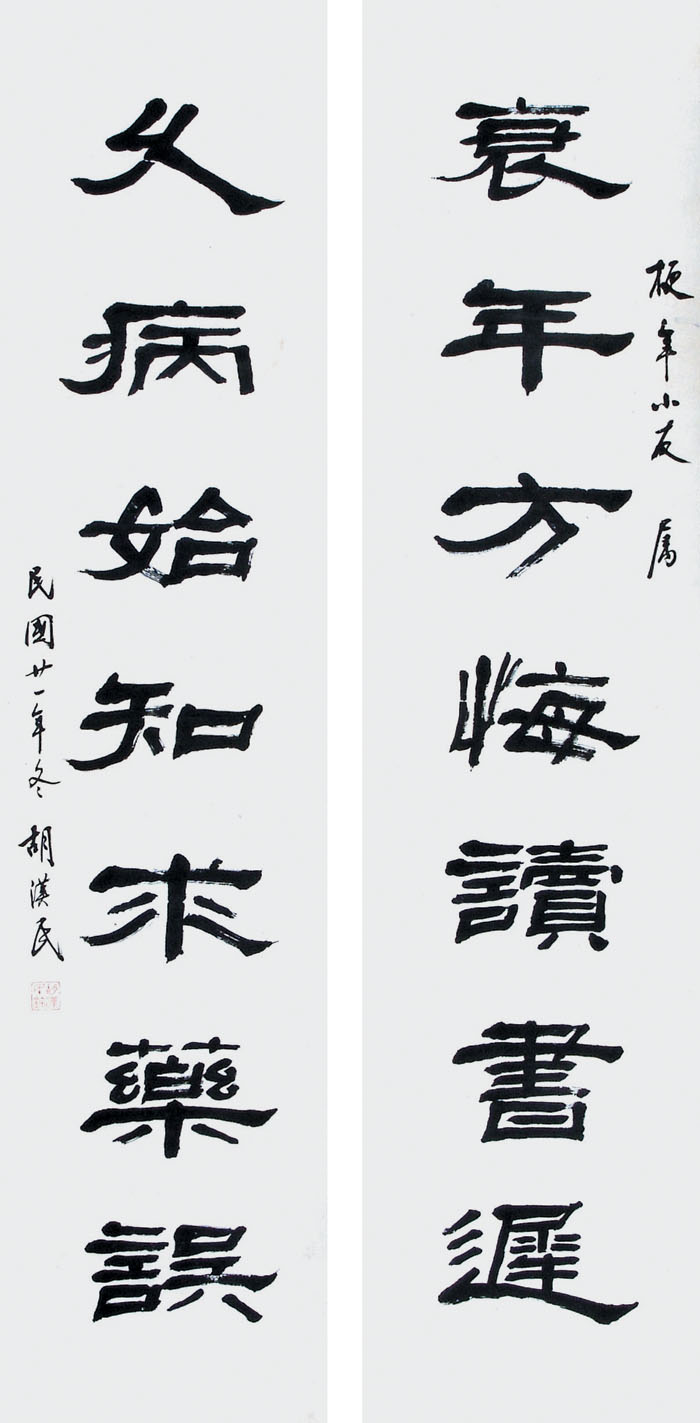 梗年小友 属
衰年方悔讀書遲
久病始知求藥誤
民國廿一年冬 胡漢民